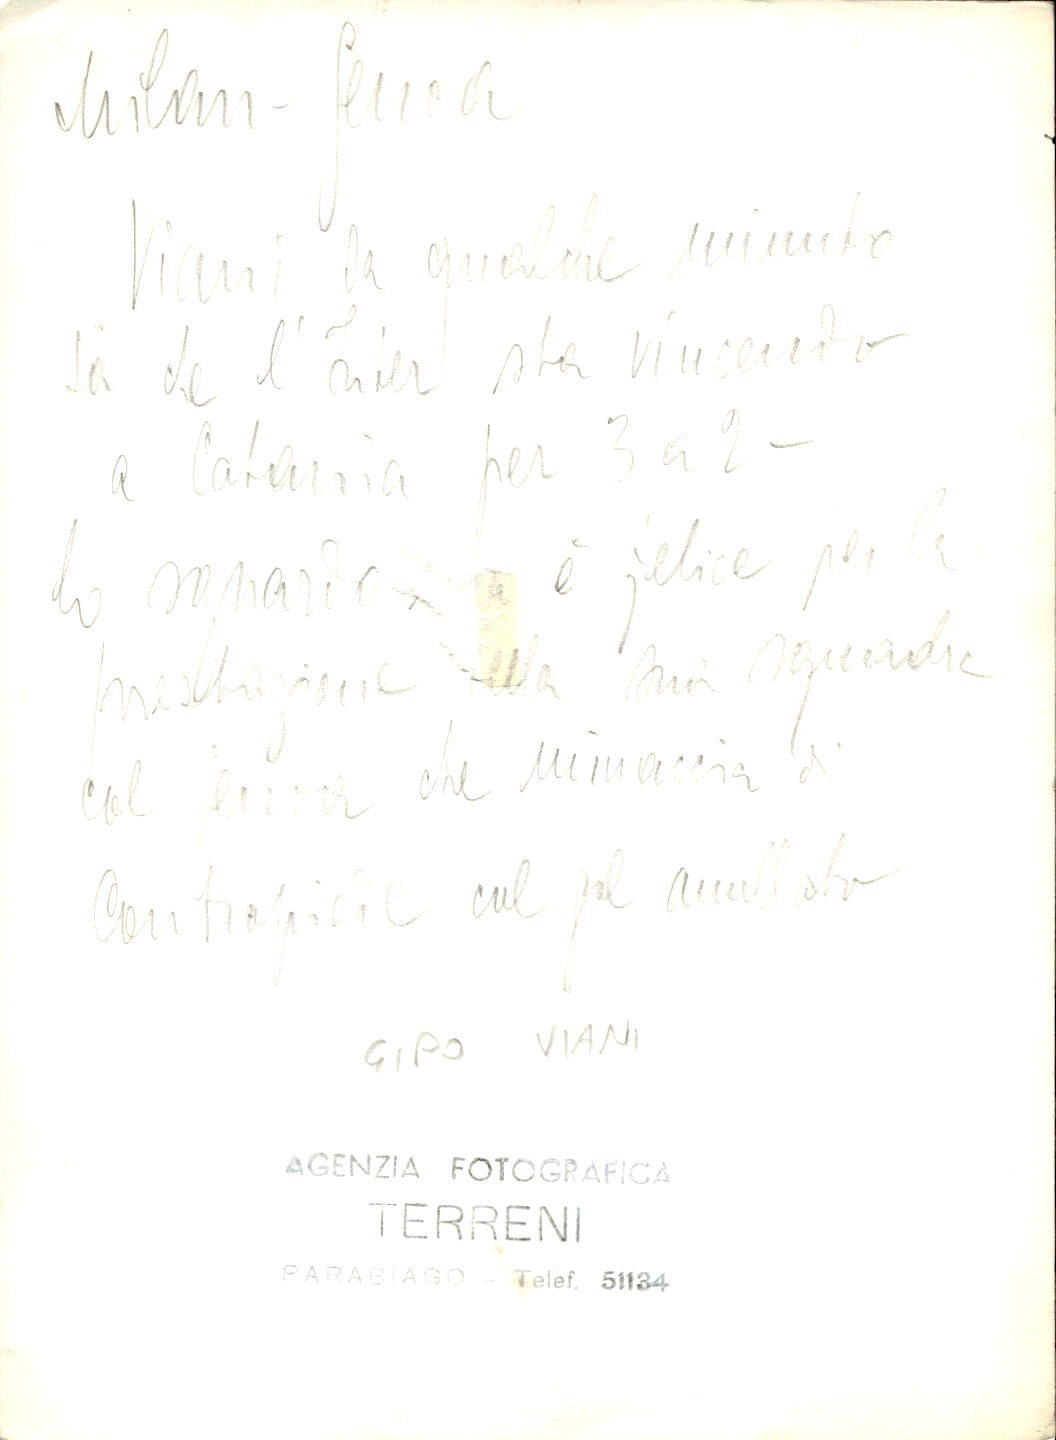 Milan - Genoa
Viani da qualche minuto
sa che l'Inter sta vincendo
a Catania per 3 a 2 -
Lo sguardo è felice per la
prestazione della sua squadra
col Genoa che minaccia di
Contropiede col gol annullato
GIPO VIANI
AGENZIA FOTOGRAFICA
TERRENI
PARABIAGO - Telef. 51134